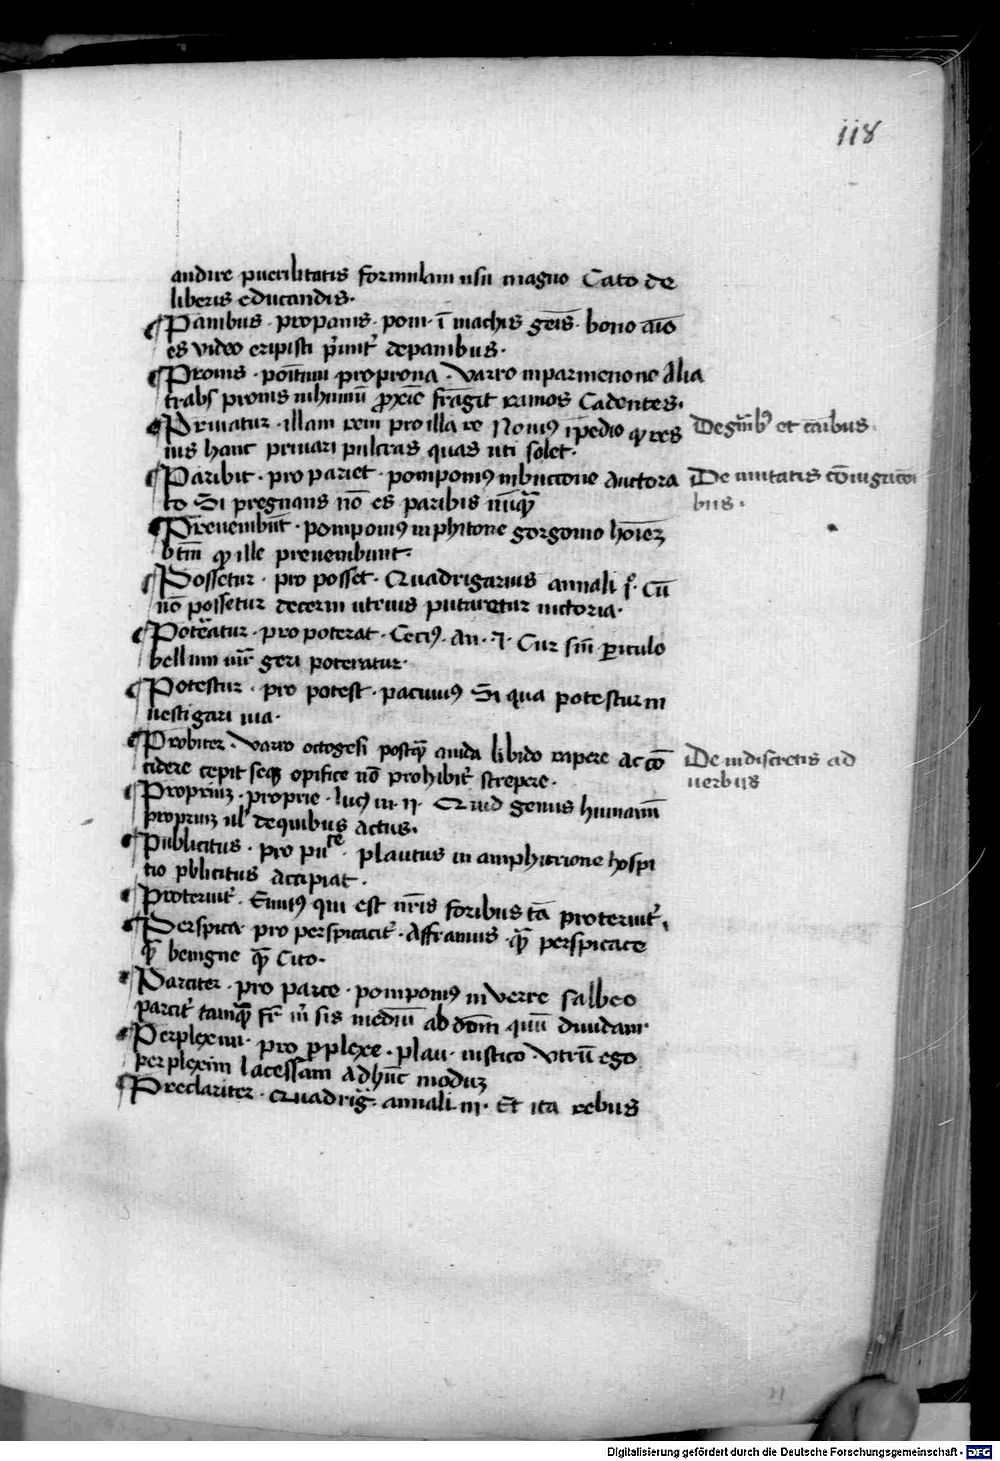 118
audire puerilitatis formulam usu magno Cato de
liberis educandis.
Panibus . propanis . pom . ī machis geīs . bono aīo
es video eripisti p̄iunt' depanibus .
Pronis . poītum . proprona . Varro inparmenone Alia
trabs pronis inhumū p̄xīe fr̄agit ramos Cadentes.
Priuatur . illam rem pro illa re Noni9 ip̄edio
ius hanc priuari pulcras quas uti solet .
Degn̄ib' et
Paribit . pro pariet . pomponi9 inbuccone Auctora
to Si pregnans nō es paribis nūq̄
De mutatis
bus .
Preuenibūt . pomponi9 inphitone gorgonio hoīēz
ille preuenibunt .
Possetur . pro posset . Quadrigarius annali Cū
nō possetur decerni utrius putaretur uictoria .
Poterat̄ur . pro poterat . An . Cur periculo
bellum geri poteratur .
Potestur . pro potest . pacuui9 Si qua potestur in
uestigari uia .
Probiter . Varro octogesi auida libido rapere ac cō
cidere cepit seq3 opifice nō prohibit' strepere .
De indiscretis ad
uerbiis
Propriuz . proprie . luci9 iii . ii . Quid genus humanū
propriuz ul' dequibus actus .
Publicitus . pro pu^re . plautus in amphitrione hospi
tio pblicitus Accipiat .
Proteruit' . Enni9 qui est nr̄is foribus tā proteruit' .
Perspica . pro perspicacit' . Afframus . q̄ perspicace
q̄ benigne q̄ Cito .
Parciter . pro parce . pomponi9 in Verre salbeo
parcit' tamq̄ sis mediū ab diuidam
Perplexim . pro p̄plexe . plau . instico . Vtrū ego
perplexim lacessam Adhūc moduz
Preclariter . Quadrig . annali . iii . Et ita rebus
Digitalisierung gefördert durch die Deutsche Forschungsgemeinschaft - DFG